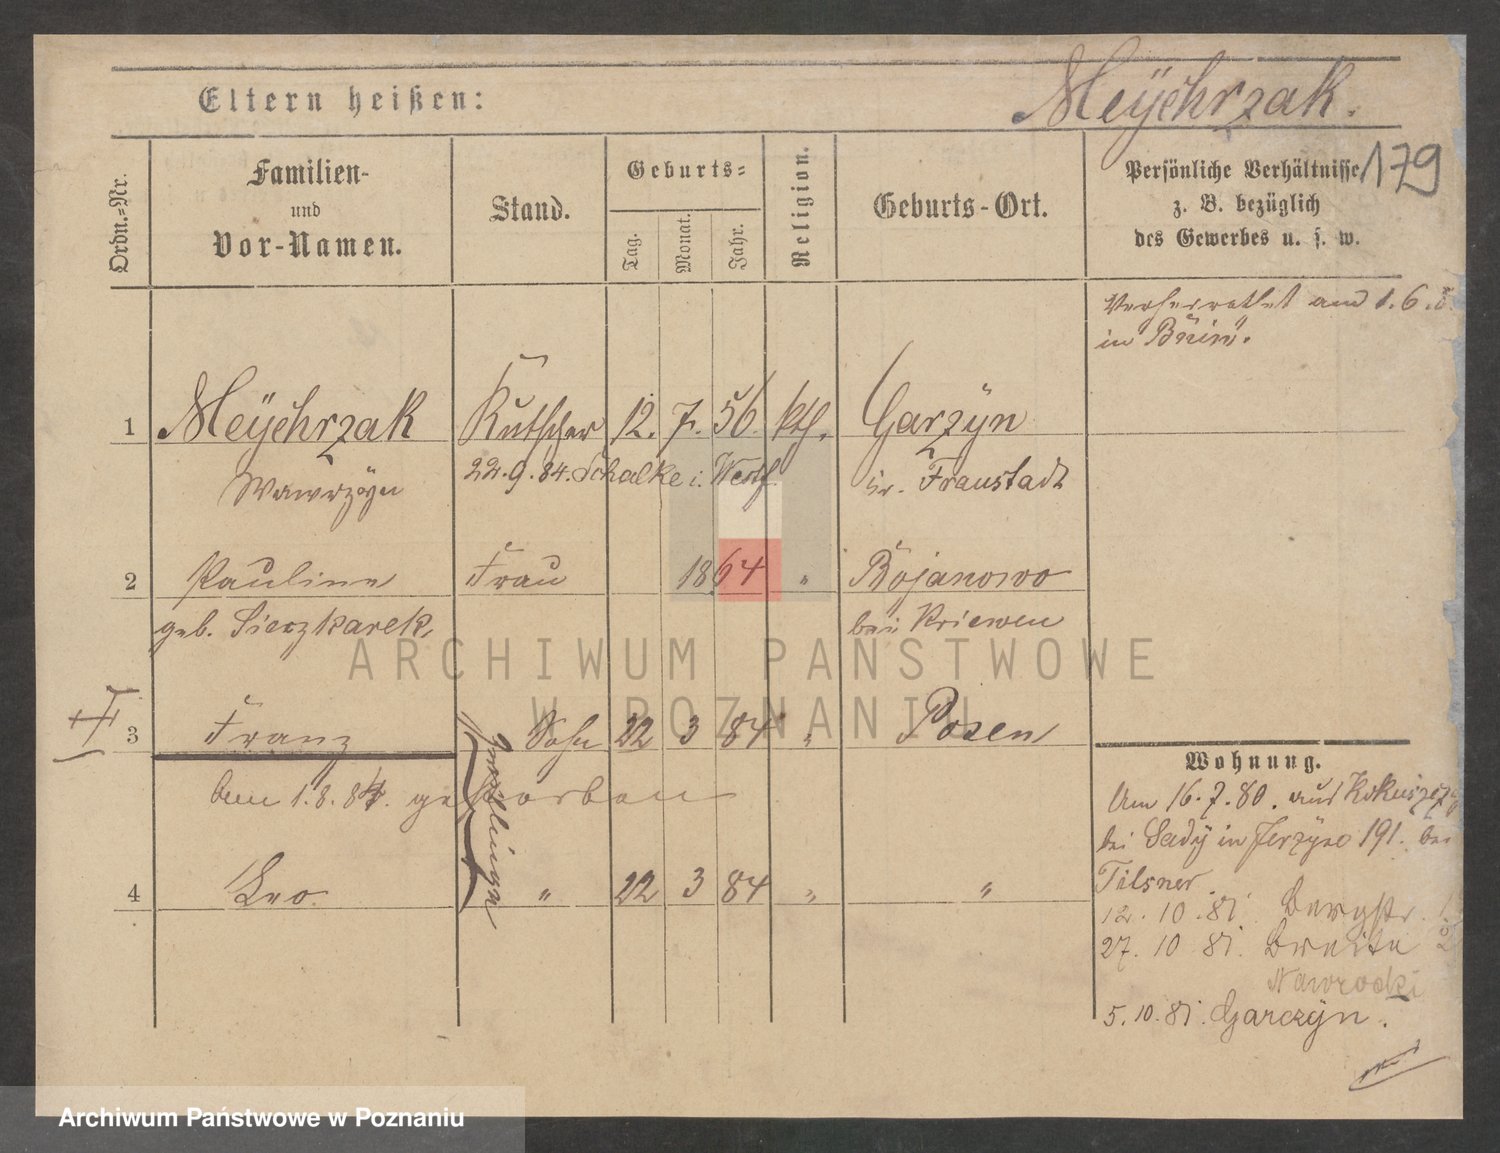 Eltern heißen:
Meÿchrzak.
179
Ordn.=Nr.
Familien-
und
Vor-Namen.
Stand.
Geburts=
Tag.
Monat.
Jahr.
Religion.
Geburts-Ort.
Persönliche Verhältnisse
z. B. bezüglich
des Gewerbes u. s. w.
Verheirathet am 1.6.
in Bnin.
1 Meÿchrzak Kutscher 12. 7. 56. kth. Garzÿn
Wawrzÿn 22.9.84. Schalke i. Westf. Kr. Fraustadt
2 Pauline Frau 1864 " Bojanowo
geb. Sieczkarek. bei Kriewen
3 Franz Sohn 22 3 84 " Posen
am 1.8.84. gestorben
Zwillinge
4 Leo. " 22 3 84 " "
Wohnung.
Am 16.7.80. aus
bei Sadÿ in Jerzÿce 191. bei
Tilsner.
12.10.81. Bergstr.
27.10 81. Breite 2
Nawrocki
5.10.81. Garczÿn.
ARCHIWUM PAŃSTWOWE
W POZNANIU
Archiwum Państwowe w Poznaniu